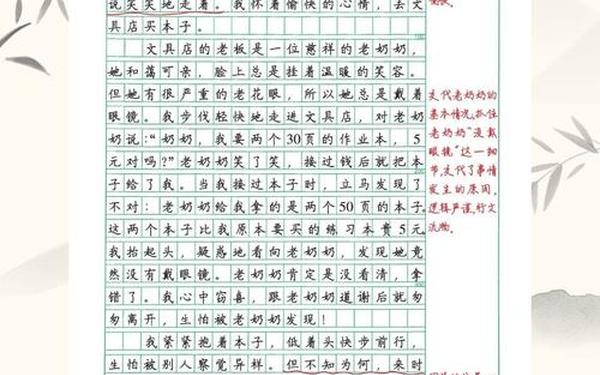 说笑笑地走着。我怀着愉快的心情，去文
具店买本子。
文具店的老板是一位慈祥的老奶奶，
她和蔼可亲，脸上总是挂着温暖的笑容。
但她有很严重的老花眼，所以她总是戴着
眼镜。我步伐轻快地走进文具店，对老奶
奶说："奶奶，我要两个30页的作业本，5
元对吗？"老奶奶笑了笑，接过钱后就把本
子给了我。当我接过本子时，立马发现了
不对：老奶奶给我拿的是两个50页的本子。
这两个本子比我原本要买的练习本贵5元。
我抬起头，疑惑地看向老奶奶，发现她竟
然没有戴眼镜。老奶奶肯定是没看清，拿
错了。我心中窃喜，跟老奶奶道谢后就匆
匆离开，生怕被老奶奶发现！
我紧紧抱着本子，低着头快步前行，
生怕被别人察觉异样。但不知为何，来时
交代老奶奶的
基本情况，抓住
老奶奶"没戴
眼镜"这一细
节，交代了事情
发生的原因，
逻辑严谨，行文
流畅。